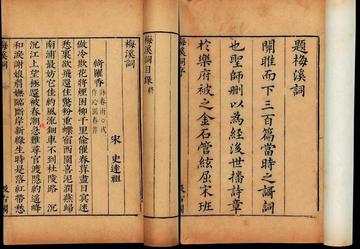 題梅溪詞
關雎而下三百篇當時之謌詞
也聖師刪以為經後世播詩章
於樂府被之金石管絃屈宋班
梅溪詞目錄終
梅溪詞
宋 史達祖
綺羅香
做冷欺花將煙困柳千里偷催春暮盡日冥迷
愁裏欲飛還住驚粉重蝶宿西園喜泥潤燕歸
南浦最妨它佳約風流鈿車不到杜陵路 沉
沉江上望極還被春潮急難尋官渡隱約遙峰
和淚謝娘眉嫵臨斷岸新綠生時是落紅帶愁
梅溪詞
汲古閣